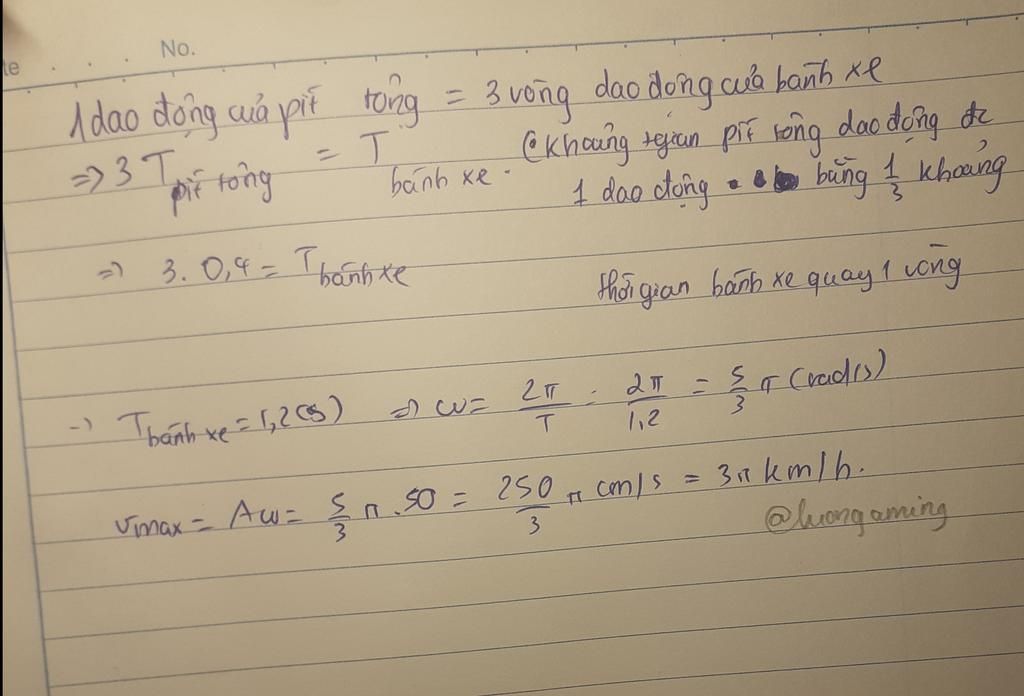 No.
te
1 dao động của pít tông = 3 vòng dao động của bánh xe
=> 3 T pít tông = T bánh xe. (khoảng tgian pít tông dao động đc
1 dao động bằng 1/3 khoảng
=> 3. 0,4 = T bánh xe
thời gian bánh xe quay 1 vòng
-> T bánh xe = 1,2 (s) => ω = 2π/T = 2π/1,2 = 5/3 π (rad/s)
vmax = Aω = 5/3 π . 50 = 250/3 π cm/s = 3π km/h.
@luongaming